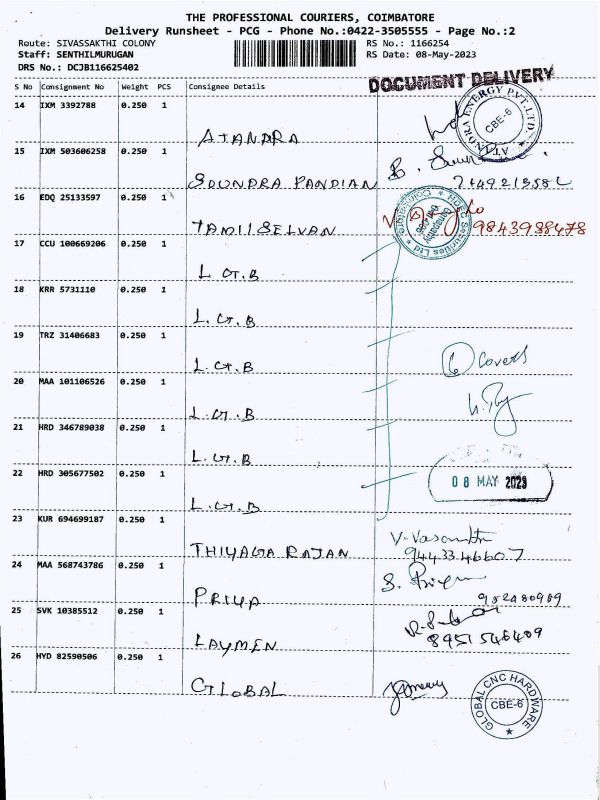 THE PROFESSIONAL COURIERS, COIMBATORE
Delivery Runsheet - PCG - Phone No.:0422-3505555 - Page No.:2
Route: SIVASSAKTHI COLONY RS No.: 1166254
Staff: SENTHILMURUGAN RS Date: 08-May-2023
DRS No.: DCJB116625402
DOCUMENT DELIVERY
S No Consignment No Weight PCS Consignee Details
14 IXM 3392788 0.250 1
ATANDRA
CBE-6
15 IXM 503606258 0.250 1
SOUNDRA PANDIAN
16 EDQ 25133597 0.250 1
TAMILSELVAN 9843988478
17 CCU 100669206 0.250 1
L GT.B
18 KRR 5731110 0.250 1
L.GT.B
19 TRZ 31406683 0.250 1
L.GT.B
6 Covers
20 MAA 101106526 0.250 1
L.GT.B
21 HRD 346789038 0.250 1
L.GT.B
22 HRD 305677502 0.250 1
08 MAY 2023
L.GT.B
23 KUR 694699187 0.250 1
THIYAGA RAJAN
9443346607
24 MAA 568743786 0.250 1
PRIYA
25 SVK 10385512 0.250 1
LAYMEN 8951546409
26 HYD 82590506 0.250 1
GLOBAL
GLOBAL CNC HARDWARE
CBE-6